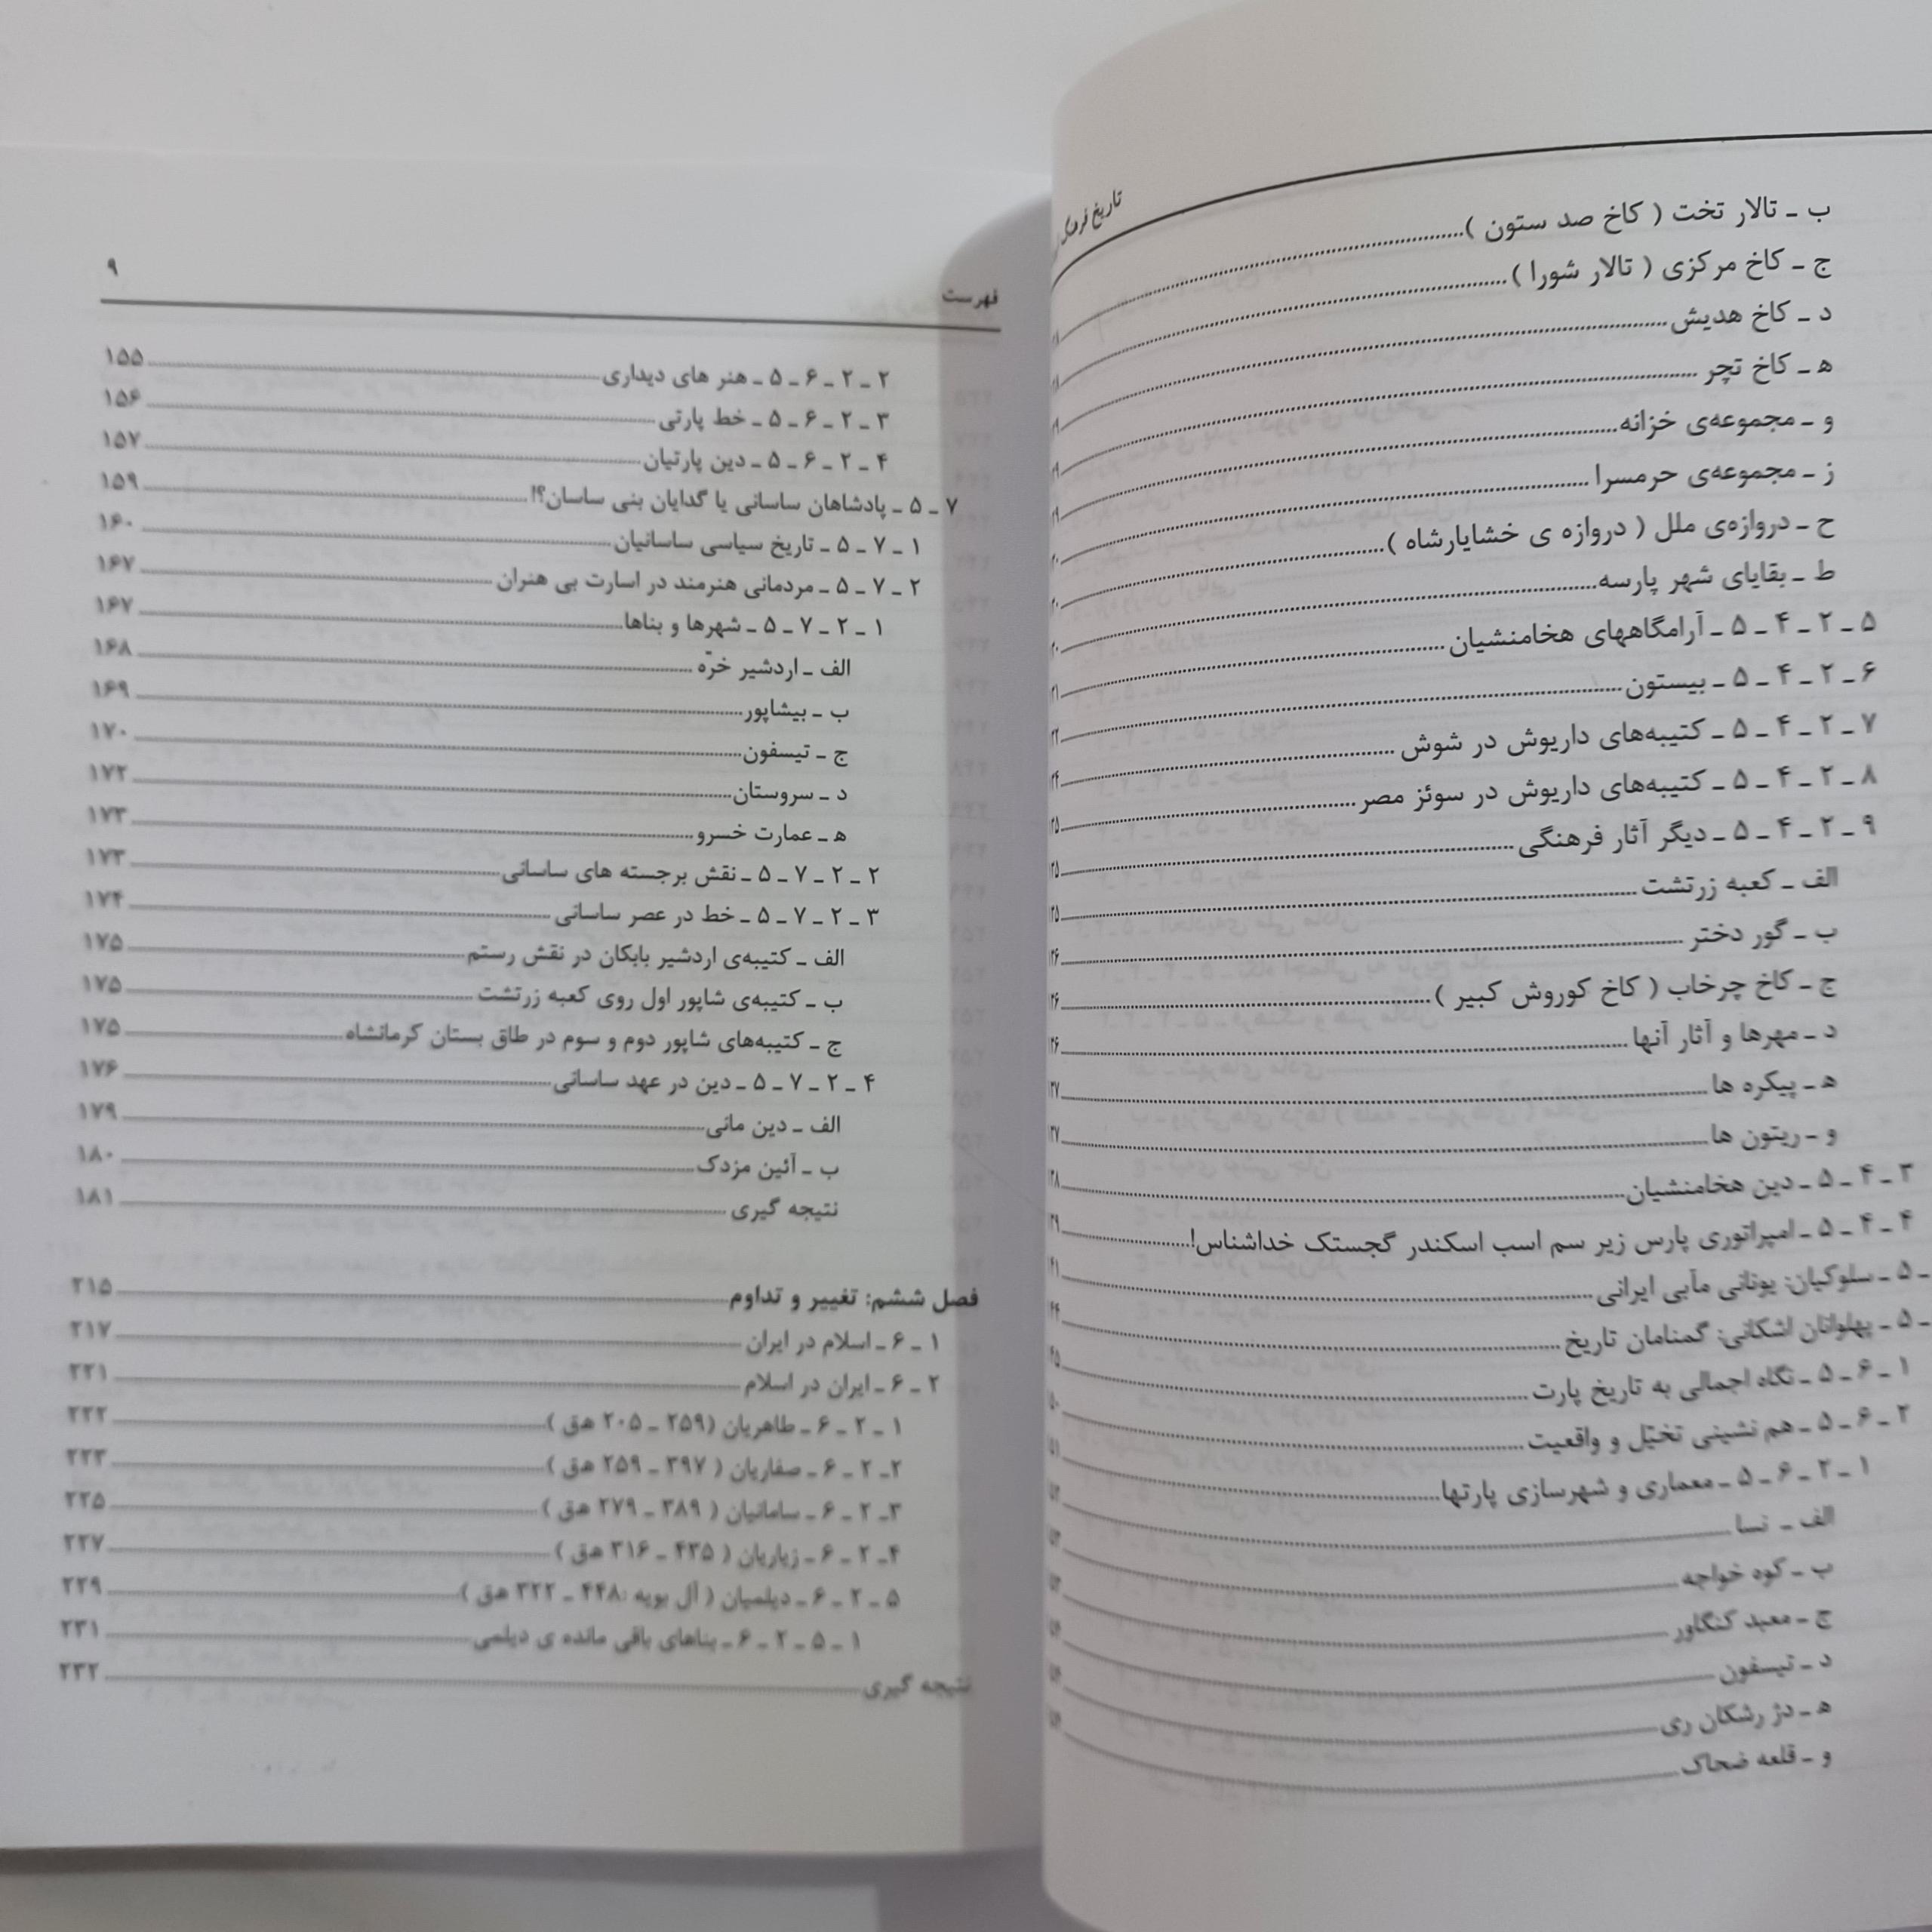 تاریخ فرهنگ
ب ـ تالار تخت ( کاخ صد ستون )
ج ـ کاخ مرکزی ( تالار شورا )
د ـ کاخ هدیش
ه ـ کاخ تچر
و ـ مجموعه‌ی خزانه
ز ـ مجموعه‌ی حرمسرا
ح ـ دروازه‌ی ملل ( دروازه ی خشایارشاه )
ط ـ بقایای شهر پارسه
۵ ـ ۲ ـ ۴ ـ ۵ ـ آرامگاههای هخامنشیان
۶ ـ ۲ ـ ۴ ـ ۵ ـ بیستون
۷ ـ ۲ ـ ۴ ـ ۵ ـ کتیبه‌های داریوش در شوش
۸ ـ ۲ ـ ۴ ـ ۵ ـ کتیبه‌های داریوش در سوئز مصر
۹ ـ ۲ ـ ۴ ـ ۵ ـ دیگر آثار فرهنگی
الف ـ کعبه زرتشت
ب ـ گور دختر
ج ـ کاخ چرخاب ( کاخ کوروش کبیر )
د ـ مهرها و آثار آنها
ه ـ پیکره ها
و ـ ریتون ها
۳ ـ ۴ ـ ۵ ـ دین هخامنشیان
۴ ـ ۴ ـ ۵ ـ امپراتوری پارس زیر سم اسب اسکندر گجستک خداشناس!
ـ ۵ ـ سلوکیان: یونانی مآبی ایرانی
ـ ۵ ـ پهلوانان اشکانی: گمنامان تاریخ
۱ ـ ۶ ـ ۵ ـ نگاه اجمالی به تاریخ پارت
۲ ـ ۶ ـ ۵ ـ هم نشینی تخیّل و واقعیت
۱ ـ ۲ ـ ۶ ـ ۵ ـ معماری و شهرسازی پارتها
الف ـ نسا
ب ـ کوه خواجه
ج ـ معبد کنگاور
د ـ تیسفون
ه ـ دژ رشکان ری
و ـ قلعه ضحاک
فهرست ۹
۲ ـ ۲ ـ ۶ ـ ۵ ـ هنر های دیداری ۱۵۵
۳ ـ ۲ ـ ۶ ـ ۵ ـ خط پارتی ۱۵۶
۴ ـ ۲ ـ ۶ ـ ۵ ـ دین پارتیان ۱۵۷
۷ ـ ۵ ـ پادشاهان ساسانی یا گدایان بنی ساسان؟! ۱۵۹
۱ ـ ۷ ـ ۵ ـ تاریخ سیاسی ساسانیان ۱۶۰
۲ ـ ۷ ـ ۵ ـ مردمانی هنرمند در اسارت بی هنران ۱۶۷
۱ ـ ۲ ـ ۷ ـ ۵ ـ شهرها و بناها ۱۶۷
الف ـ اردشیر خرّه ۱۶۸
ب ـ بیشاپور ۱۶۹
ج ـ تیسفون ۱۷۰
د ـ سروستان ۱۷۲
ه ـ عمارت خسرو ۱۷۳
۲ ـ ۲ ـ ۷ ـ ۵ ـ نقش برجسته های ساسانی ۱۷۳
۳ ـ ۲ ـ ۷ ـ ۵ ـ خط در عصر ساسانی ۱۷۴
الف ـ کتیبه‌ی اردشیر بابکان در نقش رستم ۱۷۵
ب ـ کتیبه‌ی شاپور اول روی کعبه زرتشت ۱۷۵
ج ـ کتیبه‌های شاپور دوم و سوم در طاق بستان کرمانشاه ۱۷۵
۴ ـ ۲ ـ ۷ ـ ۵ ـ دین در عهد ساسانی ۱۷۶
الف ـ دین مانی ۱۷۹
ب ـ آئین مزدک ۱۸۰
نتیجه گیری ۱۸۱
فصل ششم: تغییر و تداوم ۲۱۵
۱ ـ ۶ ـ اسلام در ایران ۲۱۷
۲ ـ ۶ ـ ایران در اسلام ۲۲۱
۱ ـ ۲ ـ ۶ ـ طاهریان (۲۵۹ ـ ۲۰۵ هـق ) ۲۲۲
۲ـ ۲ ـ ۶ ـ صفاریان ( ۳۹۷ ـ ۲۵۹ هـق ) ۲۲۳
۳ـ ۲ ـ ۶ ـ سامانیان ( ۳۸۹ ـ ۲۷۹ هـق ) ۲۲۵
۴ـ ۲ ـ ۶ ـ زیاریان ( ۴۳۵ ـ ۳۱۶ هـق ) ۲۲۷
۵ ـ ۲ ـ ۶ ـ دیلمیان ( آل بویه :۴۴۸ ـ ۳۲۲ هـق ) ۲۲۹
۱ ـ ۵ ـ ۲ ـ ۶ ـ بناهای باقی مانده ی دیلمی ۲۳۱
نتیجه گیری ۲۳۲